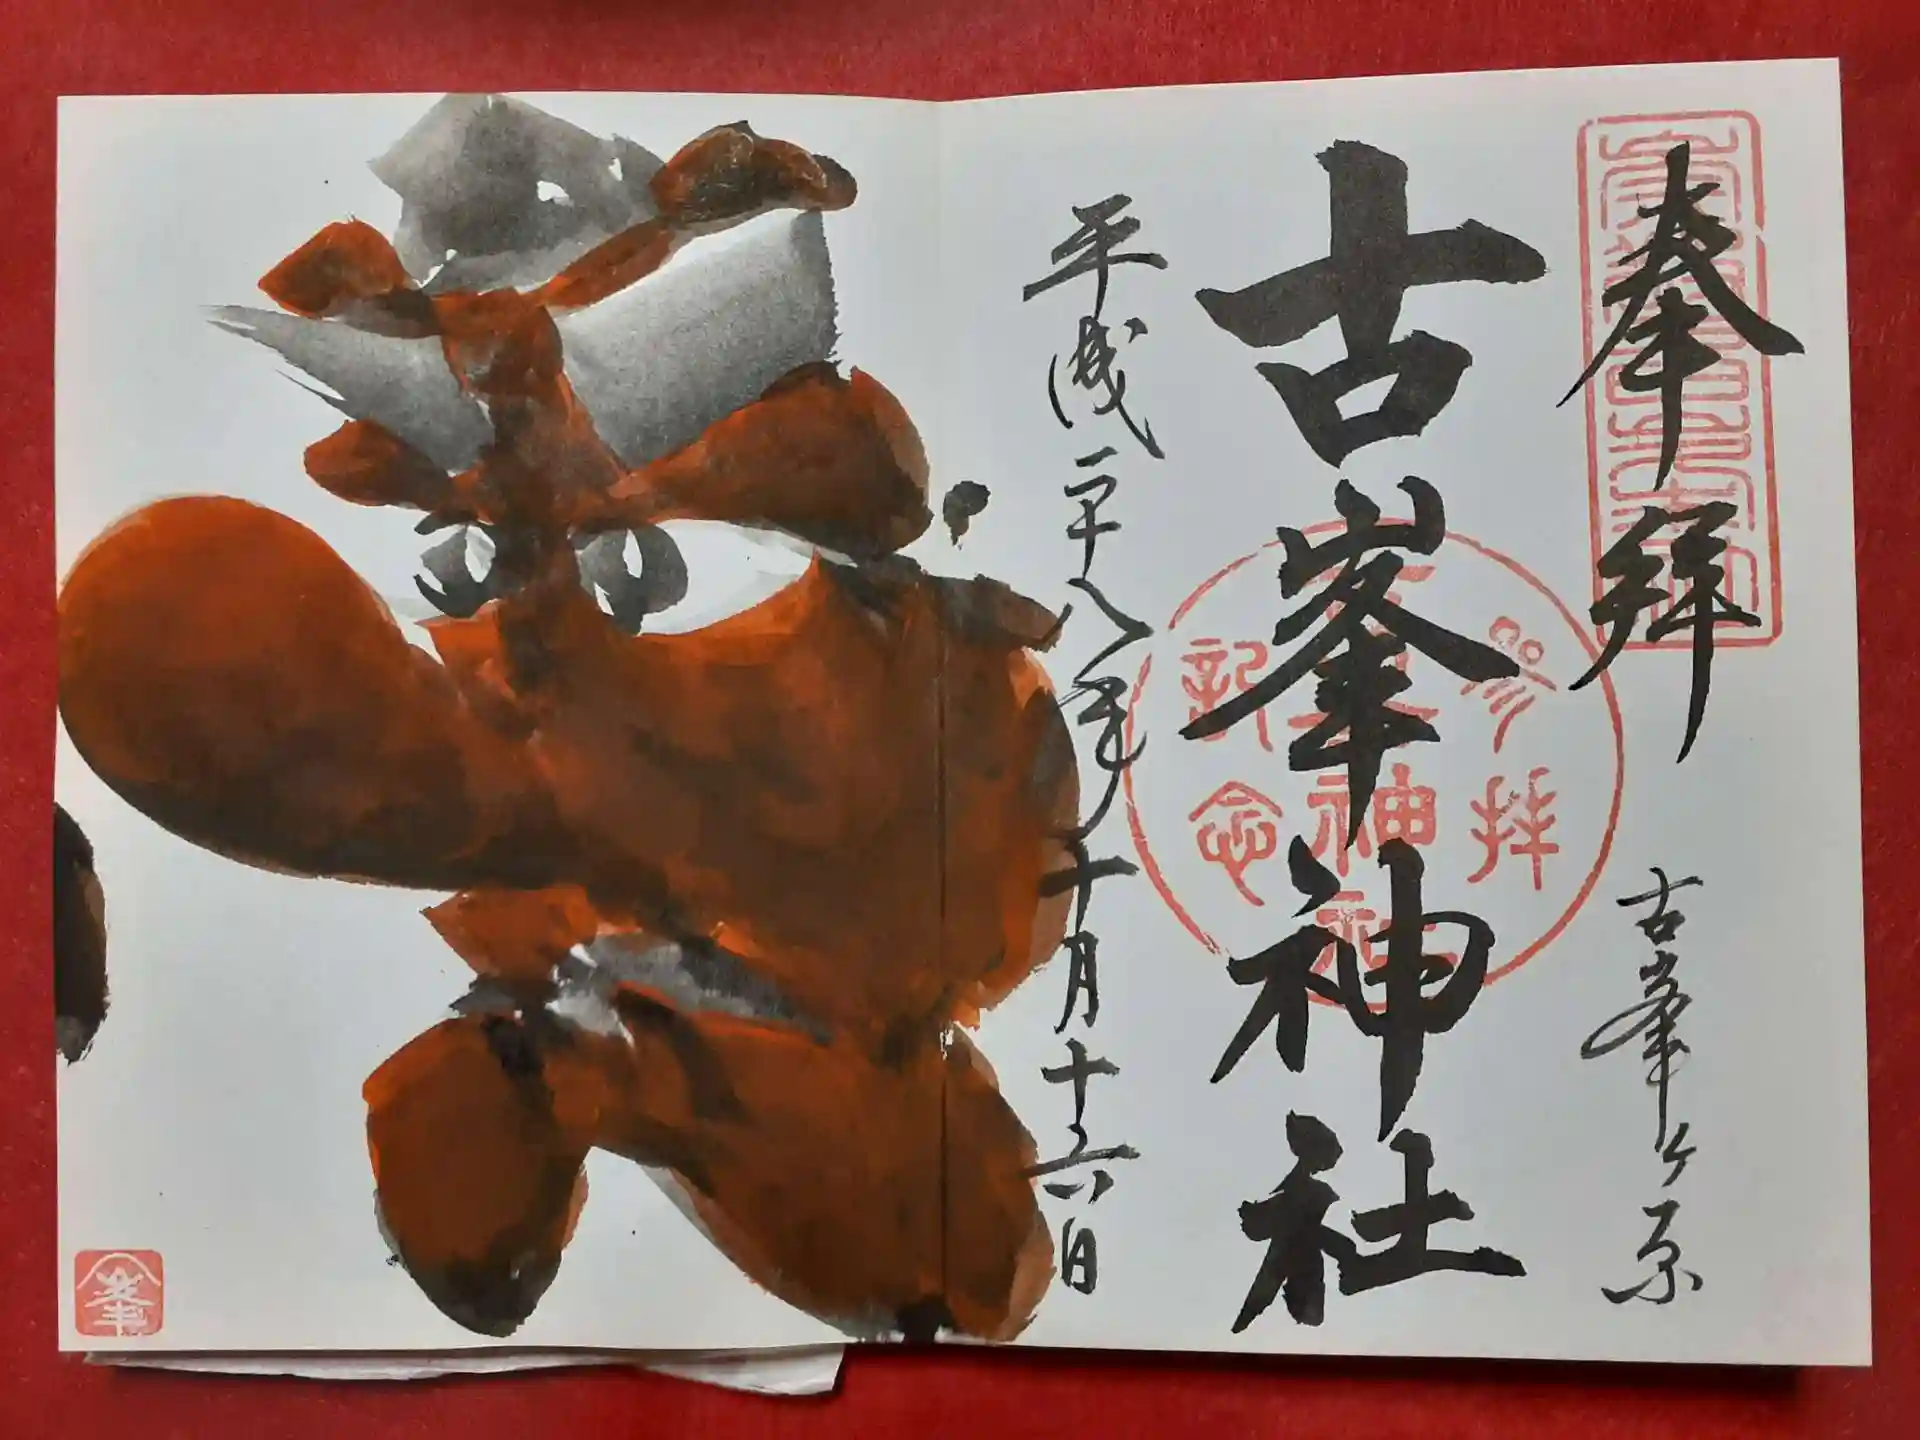 奉拝
古峯ヶ原
古峯神社
参拝
記念
平成二十八年十月十六日
峯